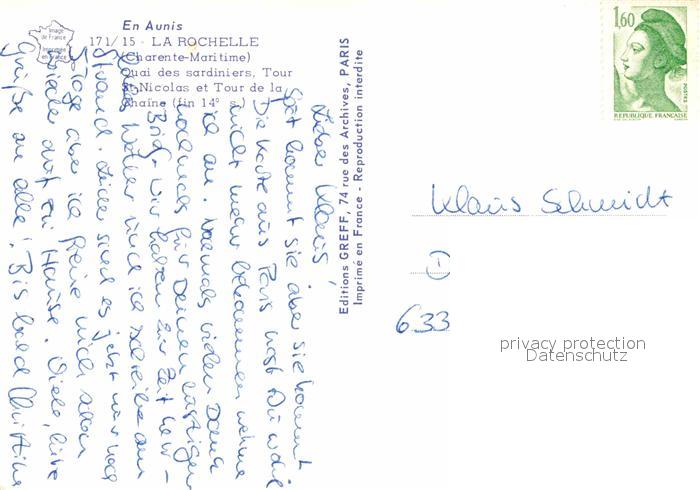 Image
de France
Imprimée
en France
En Aunis
171/15 - LA ROCHELLE
(Charente-Maritime)
Quai des sardiniers, Tour
St-Nicolas et Tour de la
Chaîne (fin 14° s.)
Editions GREFF, 74 rue des Archives, PARIS
Imprimé en France - Reproduction interdite
1,60
POSTES
REPUBLIQUE FRANÇAISE
Lieber Klaus,
Spät kommt sie aber sie kommt.
Die Karte aus Paris hast Du wohl
nicht mehr bekommen nehme
ich an. Nochmals vielen Dank
nochmals für Deinen lustigen
Brief. Wir haben zur Zeit herr-
liches Wetter und ich schreibe am
Strand. Leider sind es jetzt nur noch
Tage aber ich freue mich schon
wieder auf zu Hause. Viele liebe
Grüße an alle! Bis bald Christine
Klaus Schmidt
(-)
633
privacy protection
Datenschutz